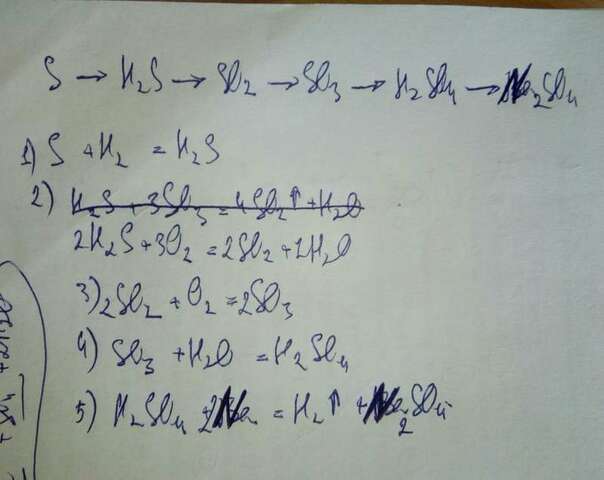 S → H₂S → SO₂ → SO₃ → H₂SO₄ → Na₂SO₄
1) S + H₂ = H₂S
2) H₂S + 3SO₃ = 4SO₂↑ + H₂O
2H₂S + 3O₂ = 2SO₂ + 2H₂O
3) 2SO₂ + O₂ = 2SO₃
4) SO₃ + H₂O = H₂SO₄
5) H₂SO₄ + 2Na = H₂↑ + Na₂SO₄